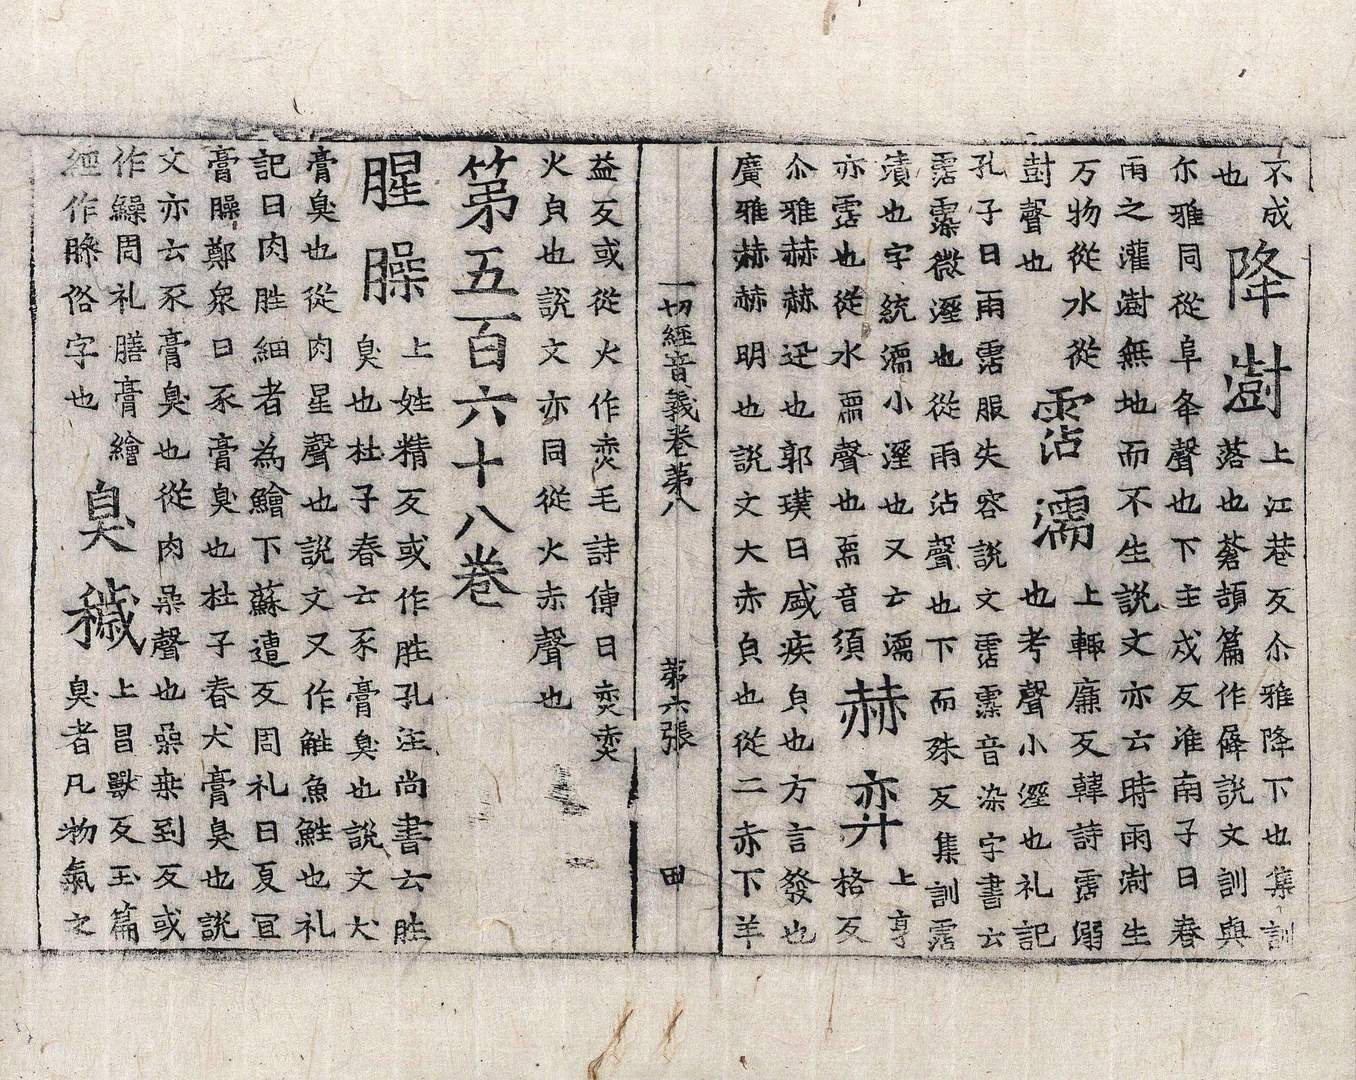 不成
也
降澍
上江巷反尒雅降下也集訓
落也蒼頡篇作夅說文訓與
尒雅同從阜夅聲也下主戍反淮南子曰春
雨之灌澍無地而不生說文亦云時雨澍生
万物從水從
尌聲也
霑濡
上輒廉反韓詩霑溺
也考聲小溼也礼記
孔子曰雨霑服失容說文霑䨙音染字書云
霑䨙微溼也從雨沾聲也下而殊反集訓霑
漬也字統濡小溼也又云濡
亦霑也從水需聲也需音須
赫弈
上亨
格反
尒雅赫赫迅也郭璞曰盛疾皃也方言發也
廣雅赫赫明也說文大赤皃也從二赤下羊
一切經音義卷第八　第六張　田
益反或從火作焲毛詩傳曰奕奕
火皃也說文亦同從火赤聲也
第五百六十八卷
腥臊
上姓精反或作胜孔注尚書云胜
臭也杜子春云豕膏臭也說文犬
膏臭也從肉星聲也說文又作鮏魚鮏也礼
記曰肉胜細者為鱠下蘇遭反周礼曰夏冝
膏臊鄭衆曰豕膏臭也杜子春犬膏臭也說
文亦云豕膏臭也從肉喿聲也喿桒到反或
作鱢周礼膳膏繪
經作𦞣俗字也
臭穢
上昌獸反玉篇
臭者凡物氣之